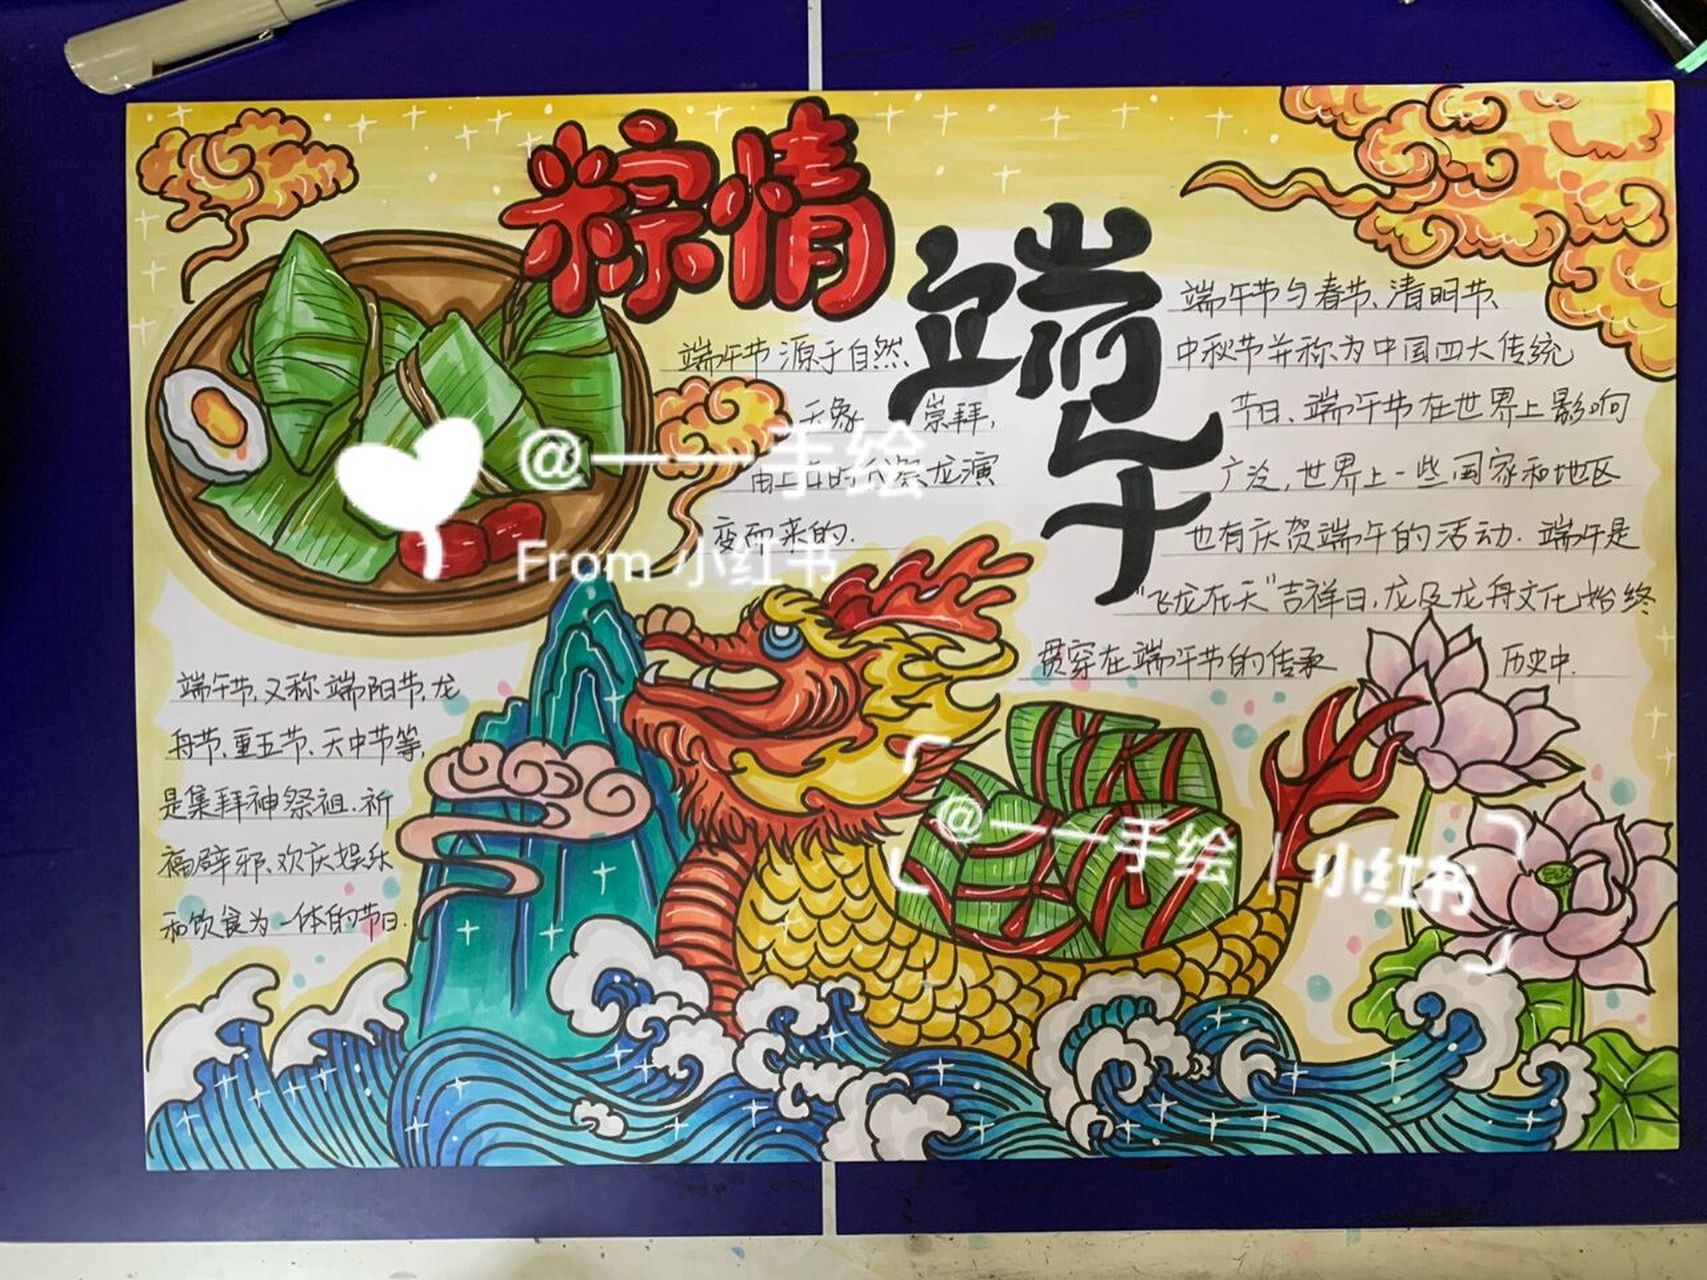 粽情
端午
端午节源于自然
天象 崇拜,
由上古时代祭龙演
变而来的.
端午节与春节、清明节、
中秋节并称为中国四大传统
节日、端午节在世界上影响
广泛,世界上一些国家和地区
也有庆贺端午的活动.端午是
"飞龙在天"吉祥日,龙及龙舟文化始终
贯穿在端午节的传承 历史中.
端午节,又称端阳节,龙
舟节、重五节、天中节等,
是集拜神祭祖、祈
福辟邪、欢庆娱乐
和饮食为一体的节日.
@一一手绘
From 小红书
@一一手绘 | 小红书